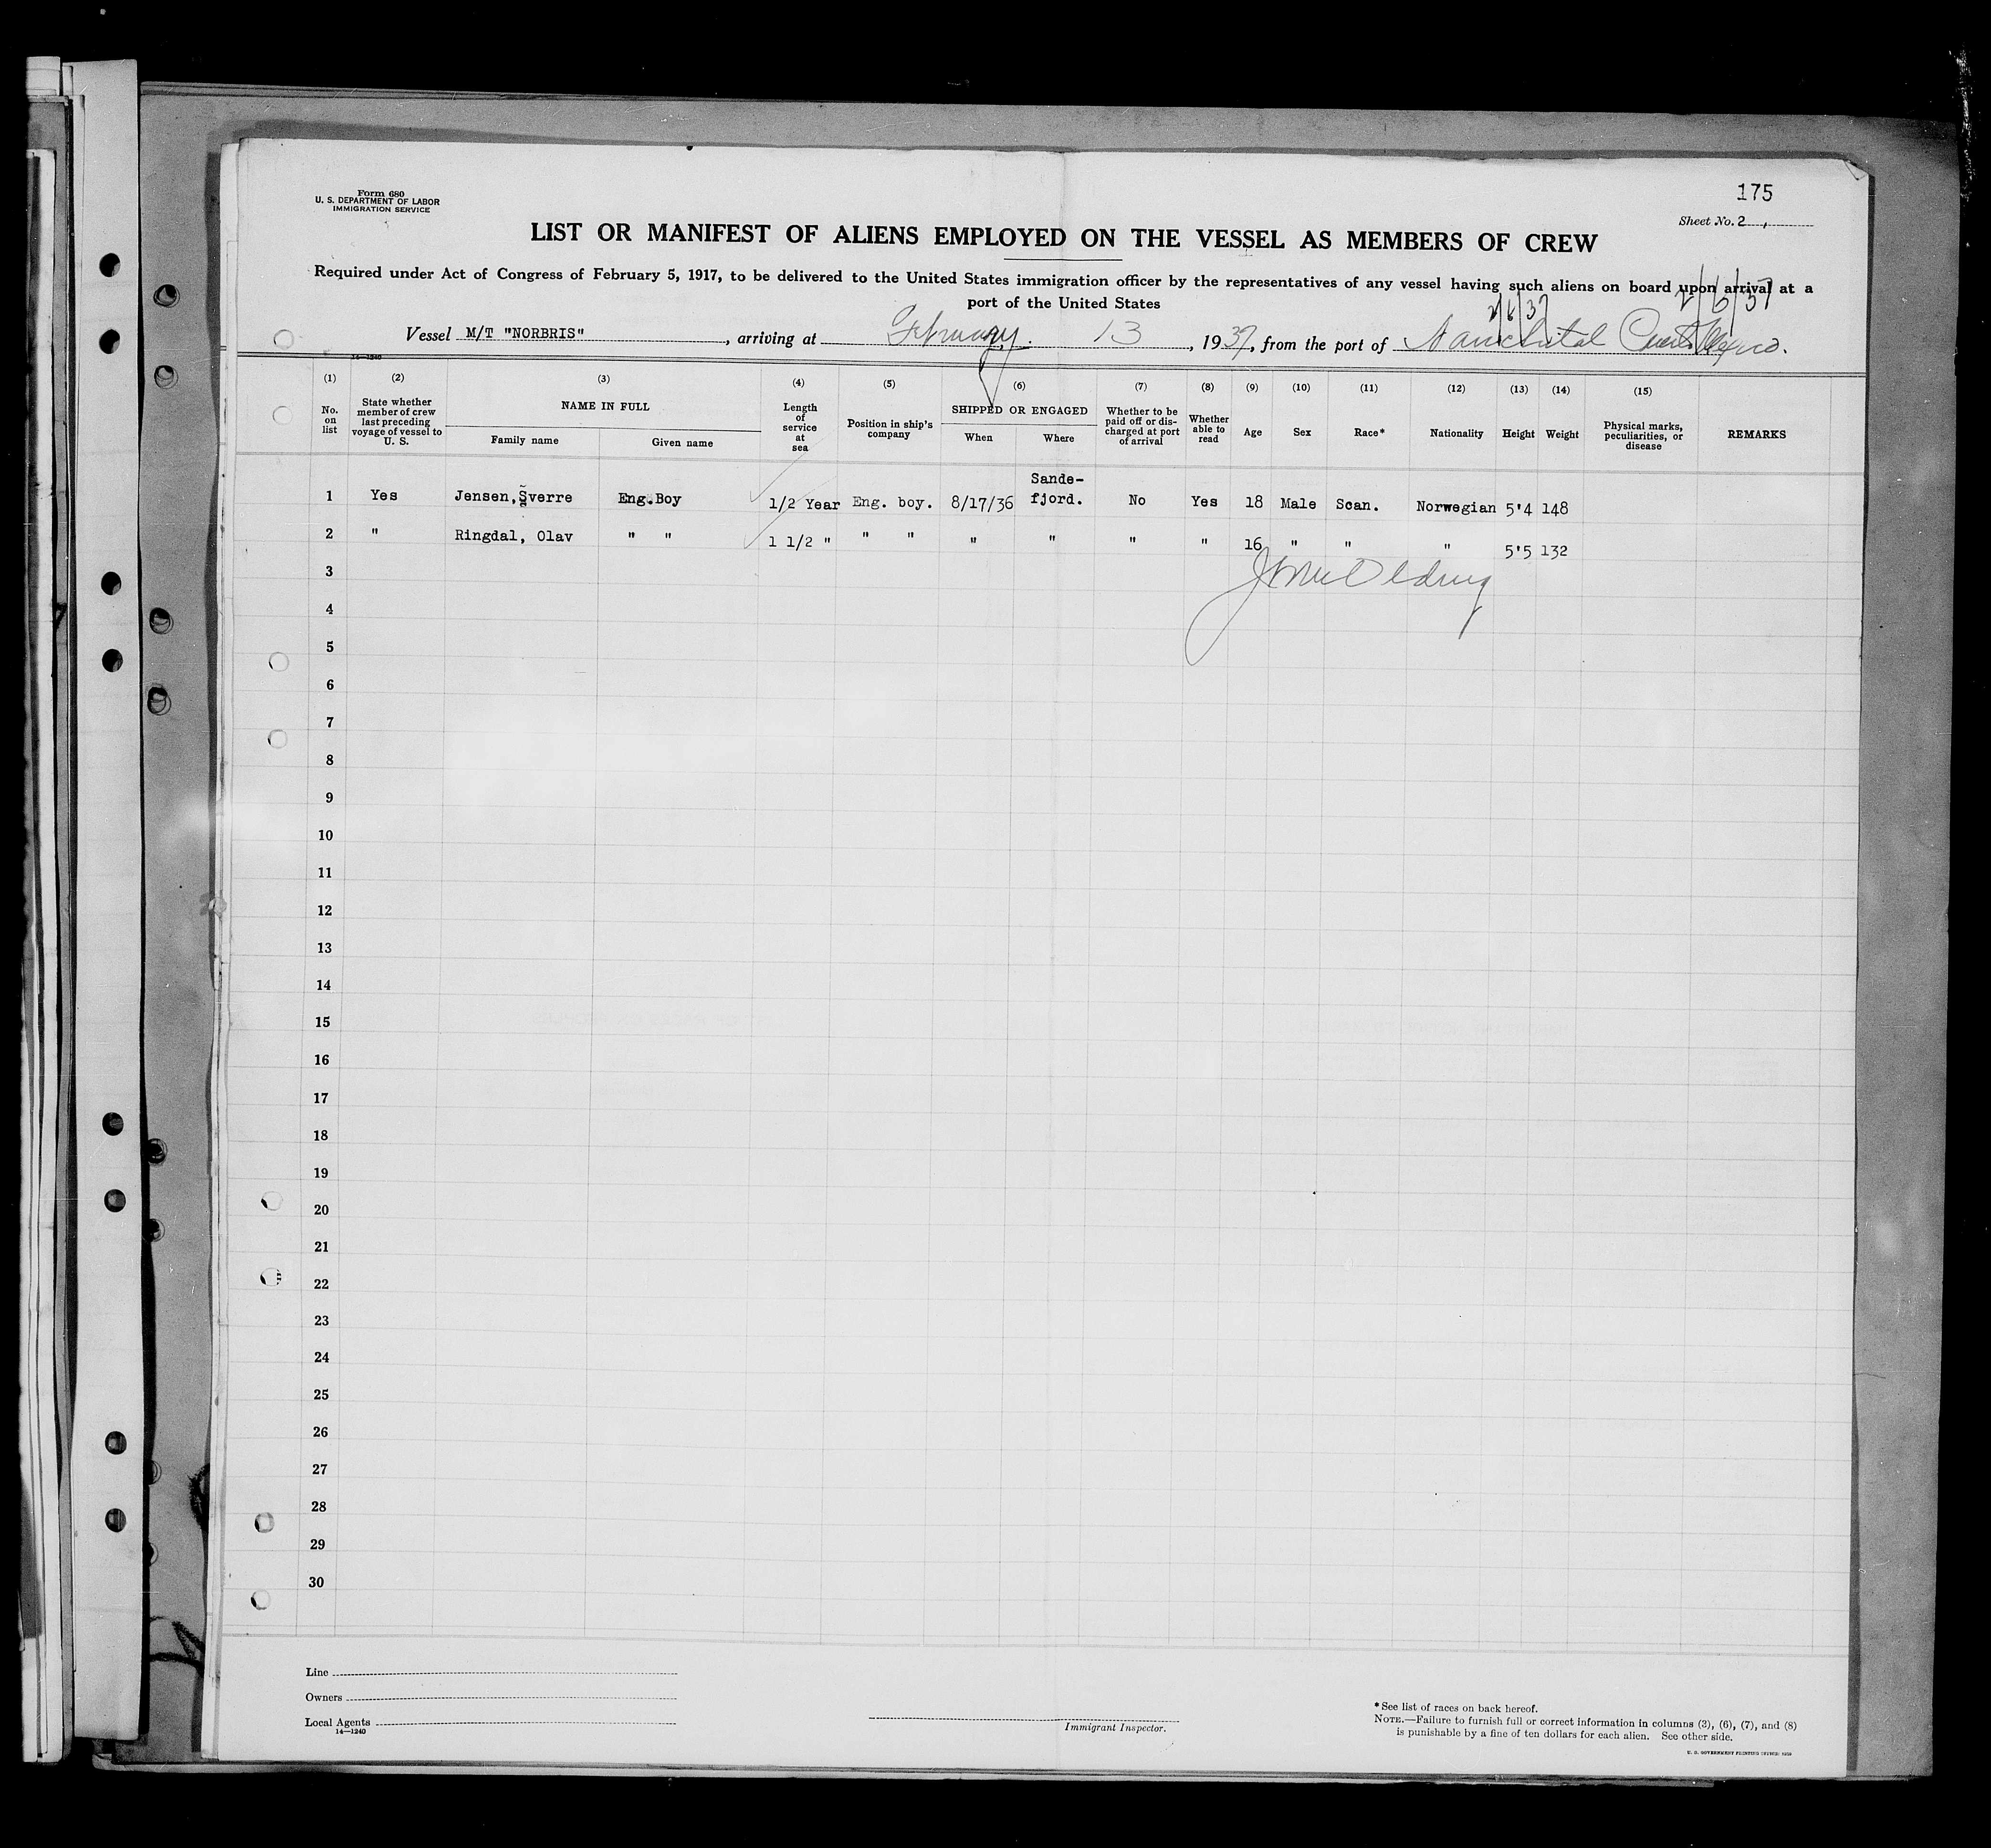 Form 680
U. S. DEPARTMENT OF LABOR
IMMIGRATION SERVICE
175
Sheet No. 2
LIST OR MANIFEST OF ALIENS EMPLOYED ON THE VESSEL AS MEMBERS OF CREW
Required under Act of Congress of February 5, 1917, to be delivered to the United States immigration officer by the representatives of any vessel having such aliens on board upon arrival at a
port of the United States
2/6/37 2/6/37
Vessel M/T "NORBRIS", arriving at February 13, 1937, from the port of Nanchital Mexico.
14—1240
(1) (2) (3) (4) (5) (6) (7) (8) (9) (10) (11) (12) (13) (14) (15)
No. on list
State whether member of crew last preceding voyage of vessel to U. S.
NAME IN FULL
Family name
Given name
Length of service at sea
Position in ship's company
SHIPPED OR ENGAGED
When
Where
Whether to be paid off or discharged at port of arrival
Whether able to read
Age
Sex
Race*
Nationality
Height
Weight
Physical marks, peculiarities, or disease
REMARKS
1 Yes Jensen, Sverre Eng.Boy 1/2 Year Eng. boy. 8/17/36 Sande-fjord. No Yes 18 Male Scan. Norwegian 5'4 148
2 " Ringdal, Olav " " 1 1/2 " " " " " " " 16 " " " 5'5 132
3
4
5
6
7
8
9
10
11
12
13
14
15
16
17
18
19
20
21
22
23
24
25
26
27
28
29
30
Line
Owners
Local Agents
14—1240
Immigrant Inspector.
*See list of races on back hereof.
NOTE.—Failure to furnish full or correct information in columns (3), (6), (7), and (8)
is punishable by a fine of ten dollars for each alien. See other side.